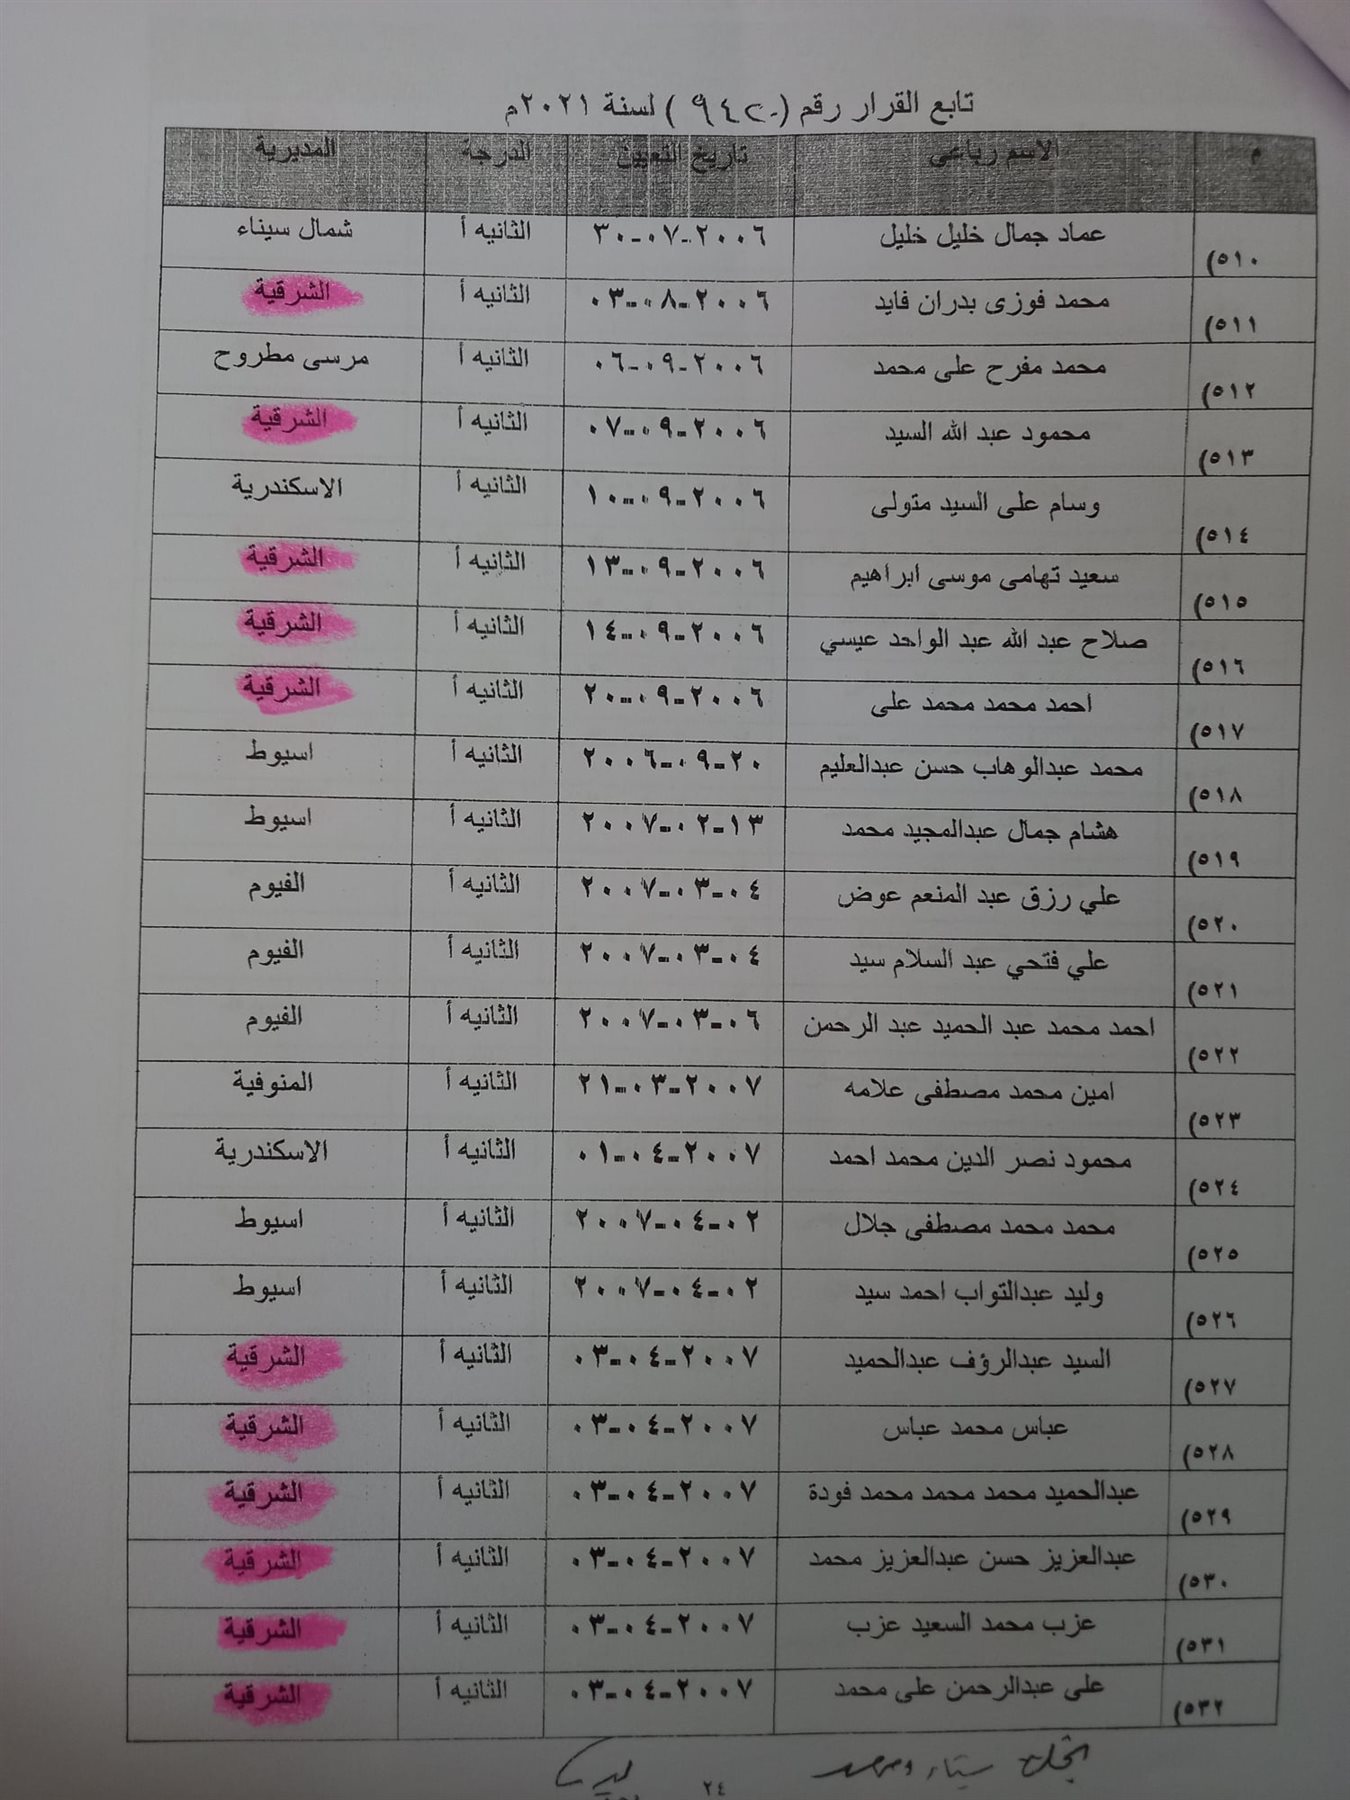 تابع القرار رقم ( ٩٤٢٠ ) لسنة ٢٠٢١م
م الاسم رباعى تاريخ التعيين الدرجة المديرية
٥١٠) عماد جمال خليل خليل ٣٠-٠٧-٢٠٠٦ الثانيه أ شمال سيناء
٥١١) محمد فوزى بدران فايد ٠٣-٠٨-٢٠٠٦ الثانيه أ الشرقية
٥١٢) محمد مفرح على محمد ٠٦-٠٩-٢٠٠٦ الثانيه أ مرسى مطروح
٥١٣) محمود عبد الله السيد ٠٧-٠٩-٢٠٠٦ الثانيه أ الشرقية
٥١٤) وسام على السيد متولى ١٠-٠٩-٢٠٠٦ الثانيه أ الاسكندرية
٥١٥) سعيد تهامى موسى ابراهيم ١٣-٠٩-٢٠٠٦ الثانيه أ الشرقية
٥١٦) صلاح عبد الله عبد الواحد عيسي ١٤-٠٩-٢٠٠٦ الثانيه أ الشرقية
٥١٧) احمد محمد محمد على ٢٠-٠٩-٢٠٠٦ الثانيه أ الشرقية
٥١٨) محمد عبدالوهاب حسن عبدالعليم ٢٠٠٦-٠٩-٢٠ الثانيه أ اسيوط
٥١٩) هشام جمال عبدالمجيد محمد ٢٠٠٧-٠٢-١٣ الثانيه أ اسيوط
٥٢٠) علي رزق عبد المنعم عوض ٢٠٠٧-٠٣-٠٤ الثانيه أ الفيوم
٥٢١) علي فتحي عبد السلام سيد ٢٠٠٧-٠٣-٠٤ الثانيه أ الفيوم
٥٢٢) احمد محمد عبد الحميد عبد الرحمن ٢٠٠٧-٠٣-٠٦ الثانيه أ الفيوم
٥٢٣) امين محمد مصطفى علامه ٢١-٠٣-٢٠٠٧ الثانيه أ المنوفية
٥٢٤) محمود نصر الدين محمد احمد ٠١-٠٤-٢٠٠٧ الثانيه أ الاسكندرية
٥٢٥) محمد محمد مصطفى جلال ٢٠٠٧-٠٤-٠٢ الثانيه أ اسيوط
٥٢٦) وليد عبدالتواب احمد سيد ٢٠٠٧-٠٤-٠٢ الثانيه أ اسيوط
٥٢٧) السيد عبدالرؤف عبدالحميد ٠٣-٠٤-٢٠٠٧ الثانيه أ الشرقية
٥٢٨) عباس محمد عباس ٠٣-٠٤-٢٠٠٧ الثانيه أ الشرقية
٥٢٩) عبدالحميد محمد محمد محمد فودة ٠٣-٠٤-٢٠٠٧ الثانيه أ الشرقية
٥٣٠) عبدالعزيز حسن عبدالعزيز محمد ٠٣-٠٤-٢٠٠٧ الثانيه أ الشرقية
٥٣١) عزب محمد السعيد عزب ٠٣-٠٤-٢٠٠٧ الثانيه أ الشرقية
٥٣٢) على عبدالرحمن على محمد ٠٣-٠٤-٢٠٠٧ الثانيه أ الشرقية
٢٤